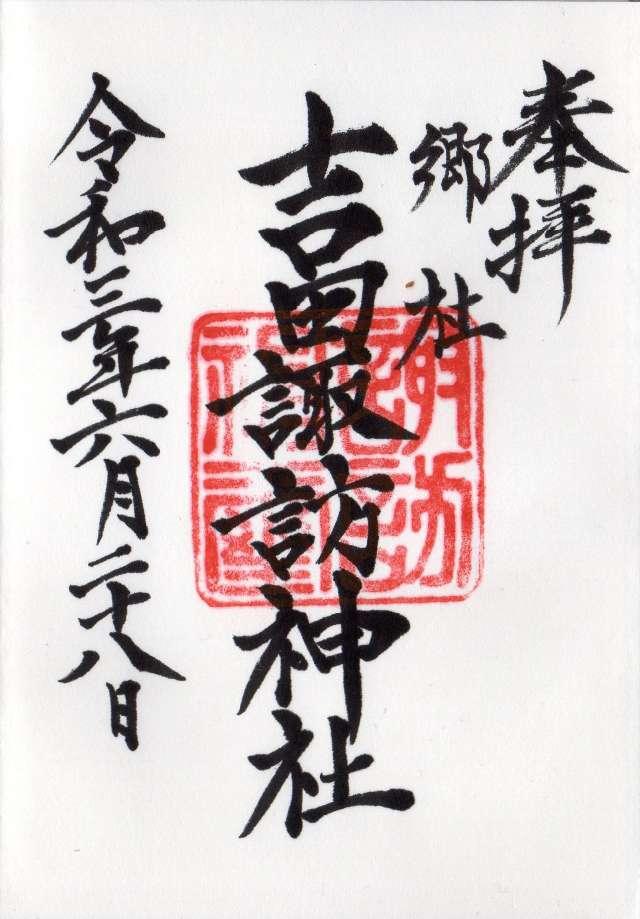 奉拝
郷社
吉田諏訪神社
令和三年六月二十八日